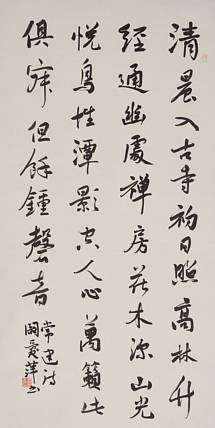 清晨入古寺初日照高林竹
徑通幽處禪房花木深山光
悅鳥性潭影空人心萬籟此
俱寂但餘鍾磬音
常建詩
萍书